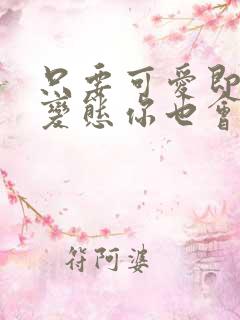 只要可愛即
變態你也會
符阿婆